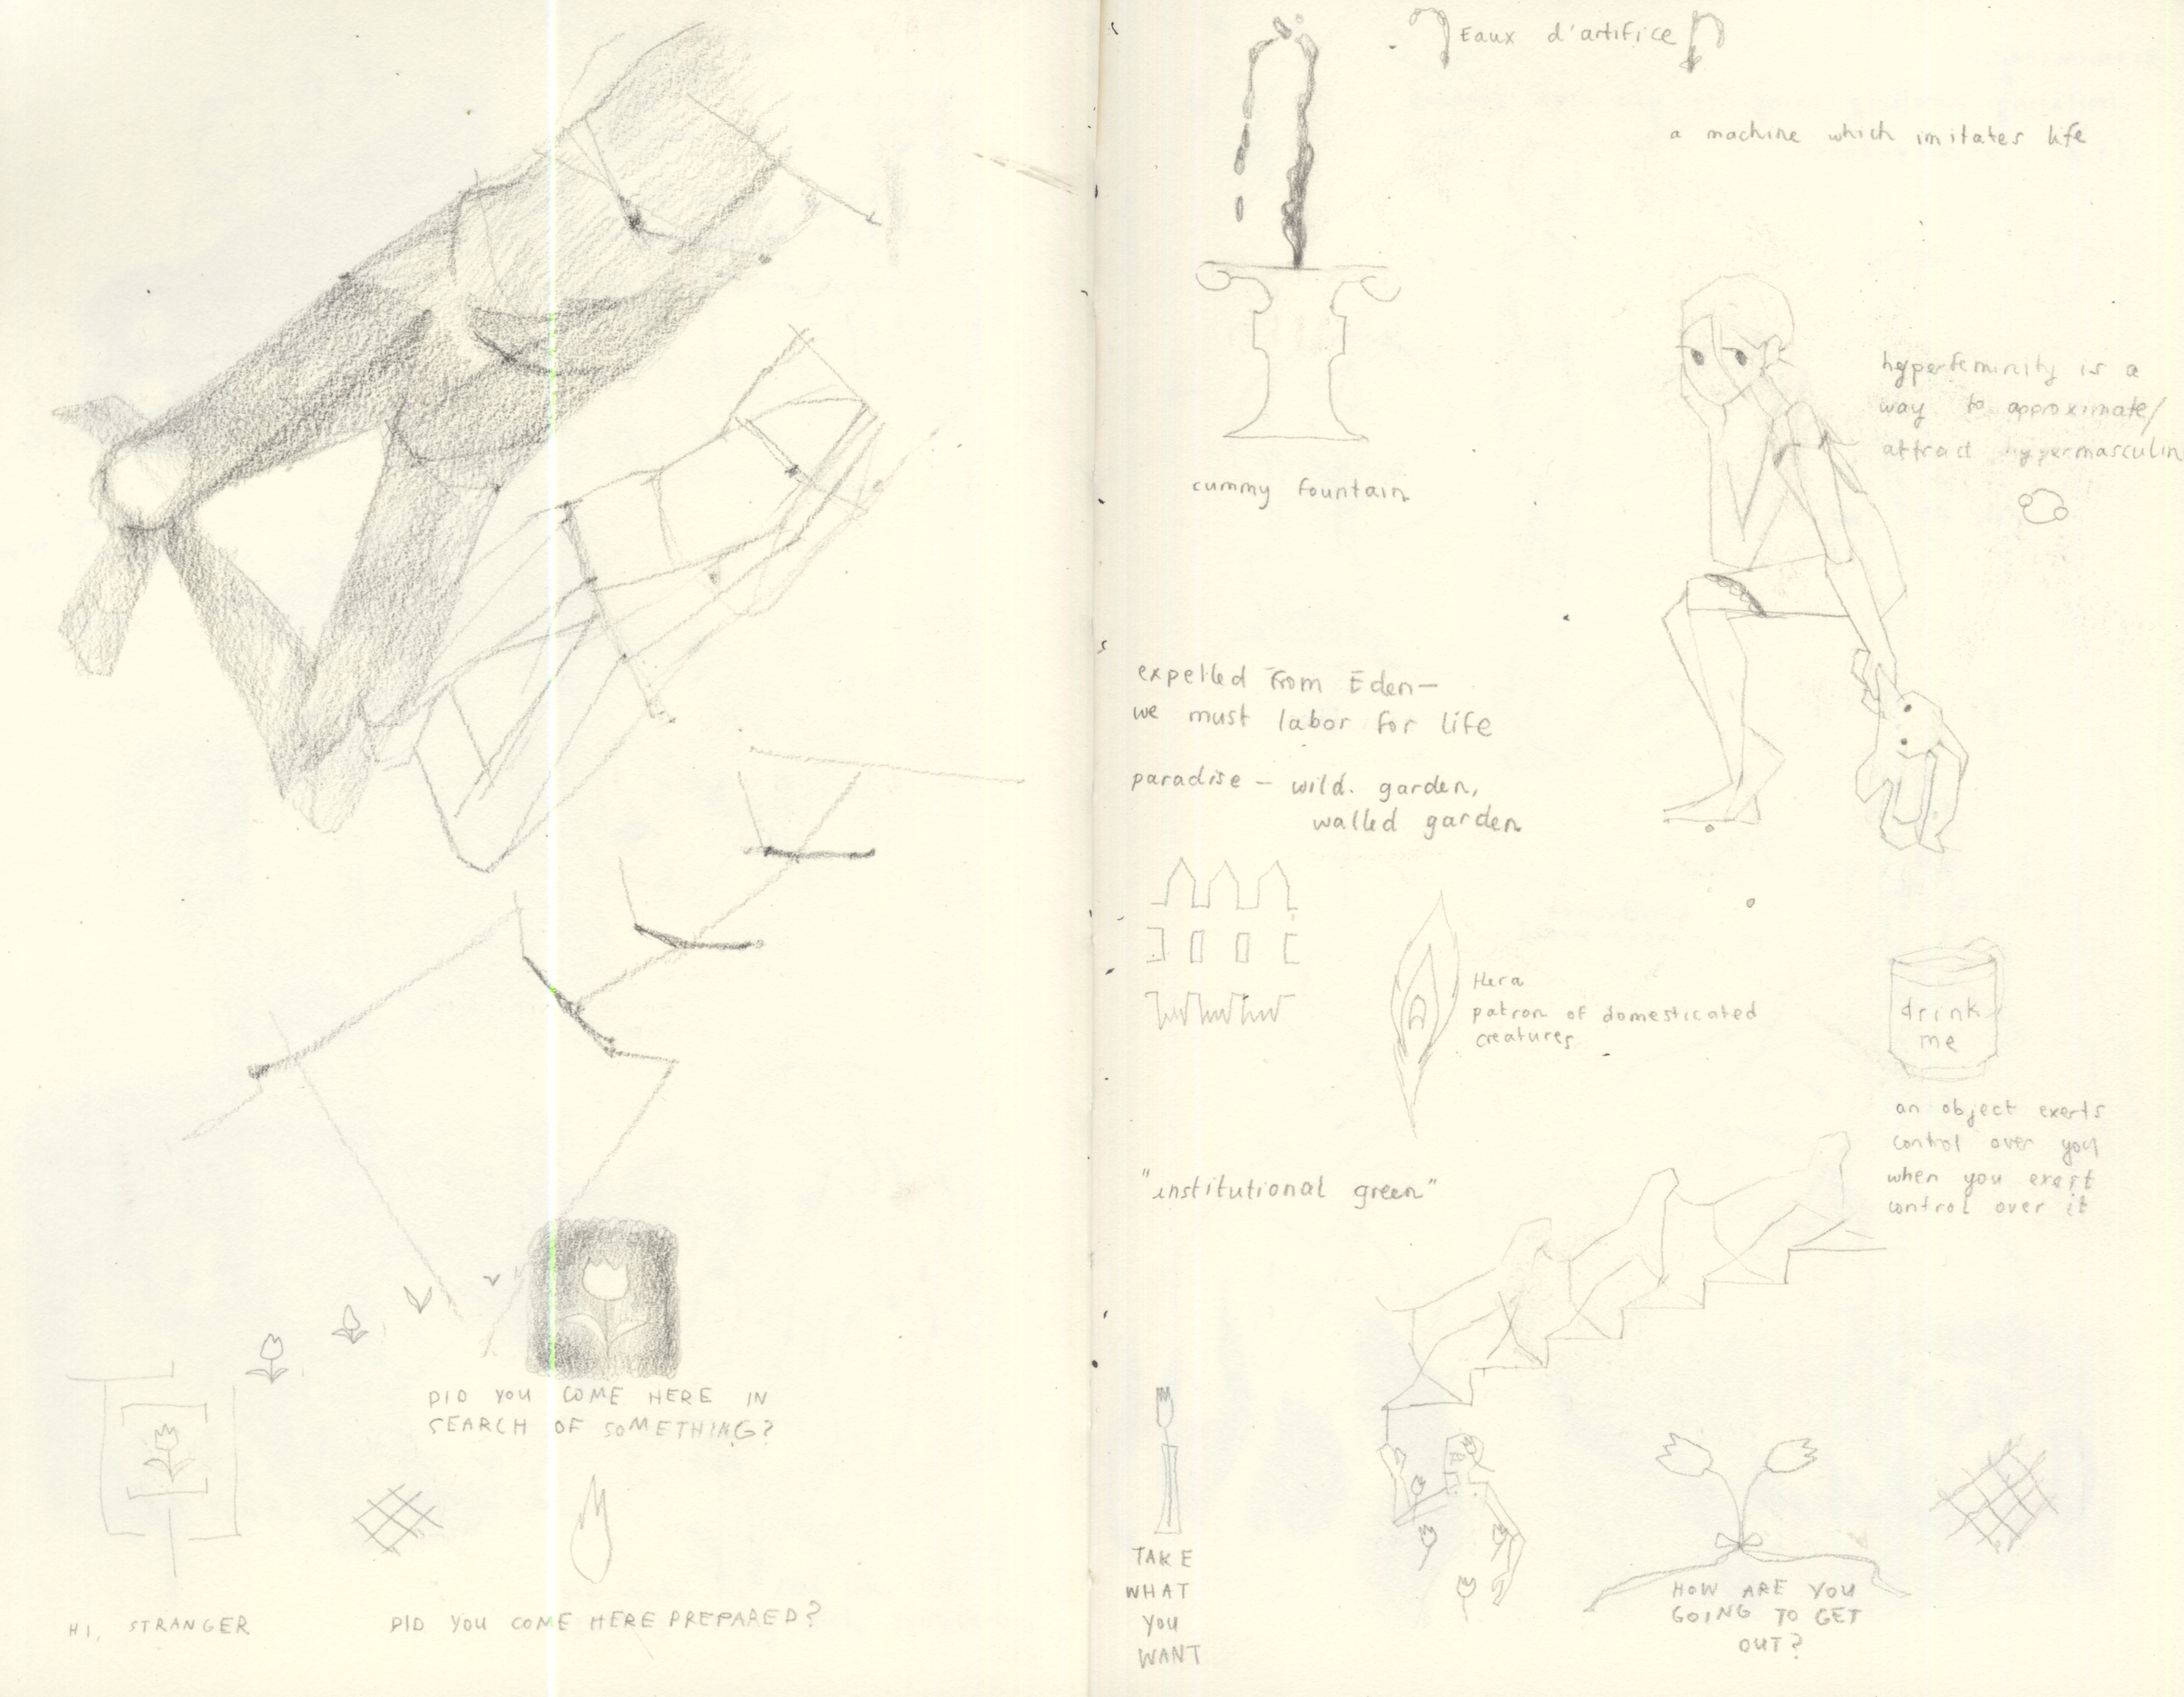 DID YOU COME HERE IN
SEARCH OF SOMETHING?
HI, STRANGER
DID YOU COME HERE PREPARED?
Eaux d'artifice
a machine which imitates life
cummy fountain
hyperfeminity is a
way to approximate/
attract hypermasculin
expelled from Eden—
we must labor for life
paradise — wild. garden,
walled garden
Hera
patron of domesticated
creatures
drink
me
an object exerts
control over you
when you exert
control over it
"institutional green"
TAKE
WHAT
YOU
WANT
HOW ARE YOU
GOING TO GET
OUT?